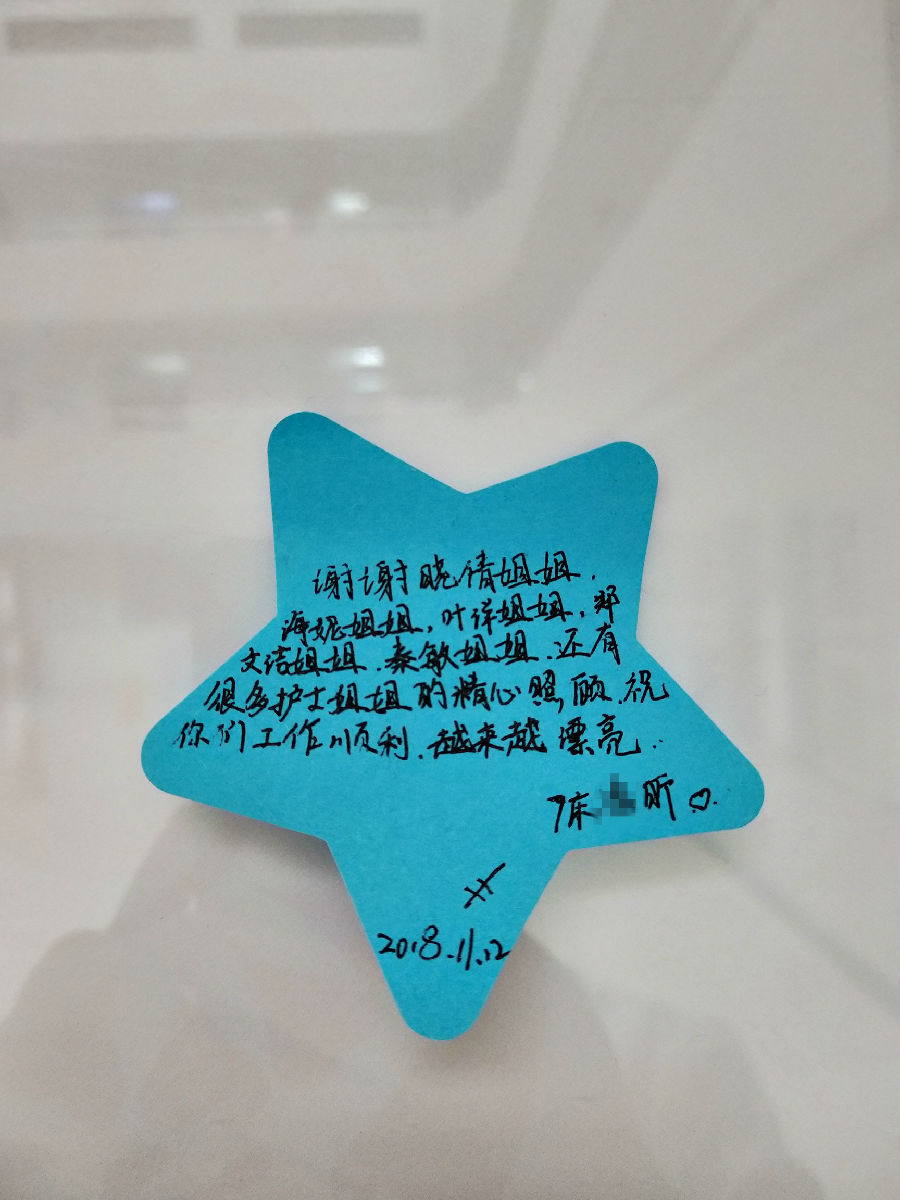 谢谢晓倩姐姐，
海妮姐姐，叶萍姐姐，郑
文洁姐姐，秦敏姐姐，还有
很多护士姐姐的精心照顾，祝
你们工作顺利，越来越漂亮..
陈 昕♡.
2018.11.12